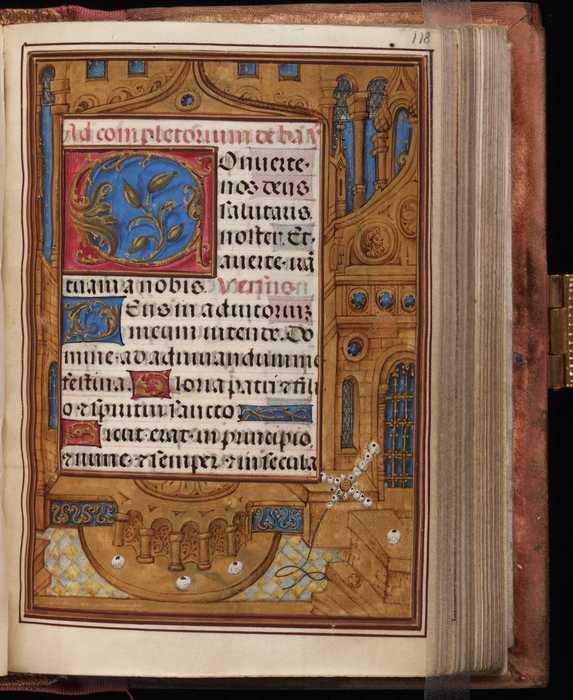 118
Ad completorium de bā
Conuerte
nos deus
salutaris
noster. Et
auerte irā
tuam a nobis. Versus
Deus in adiutorium
meum intende. Do
mine ad adiuuandum me
festina. Gloria patri ⁊ fili
o ⁊ spiritui sancto
Sicut erat in principio
⁊ nunc ⁊ semper ⁊ in secula